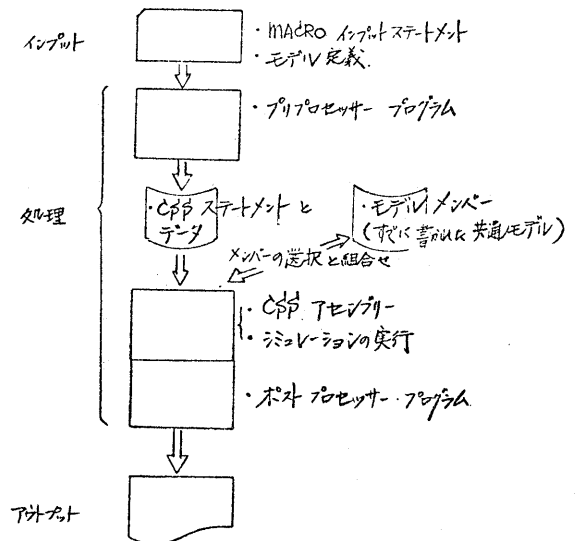 インプット
・MACRO インプットステートメント
・モデル定義.
・プリプロセッサー プログラム
処理
・CSS ステートメントと
データ
・モデルメンバー
(すでに書かれた共通モデル)
メンバーの選択と組合せ
・CSS アセンブリー
・シミュレーションの実行
・ポストプロセッサー・プログラム
アウトプット